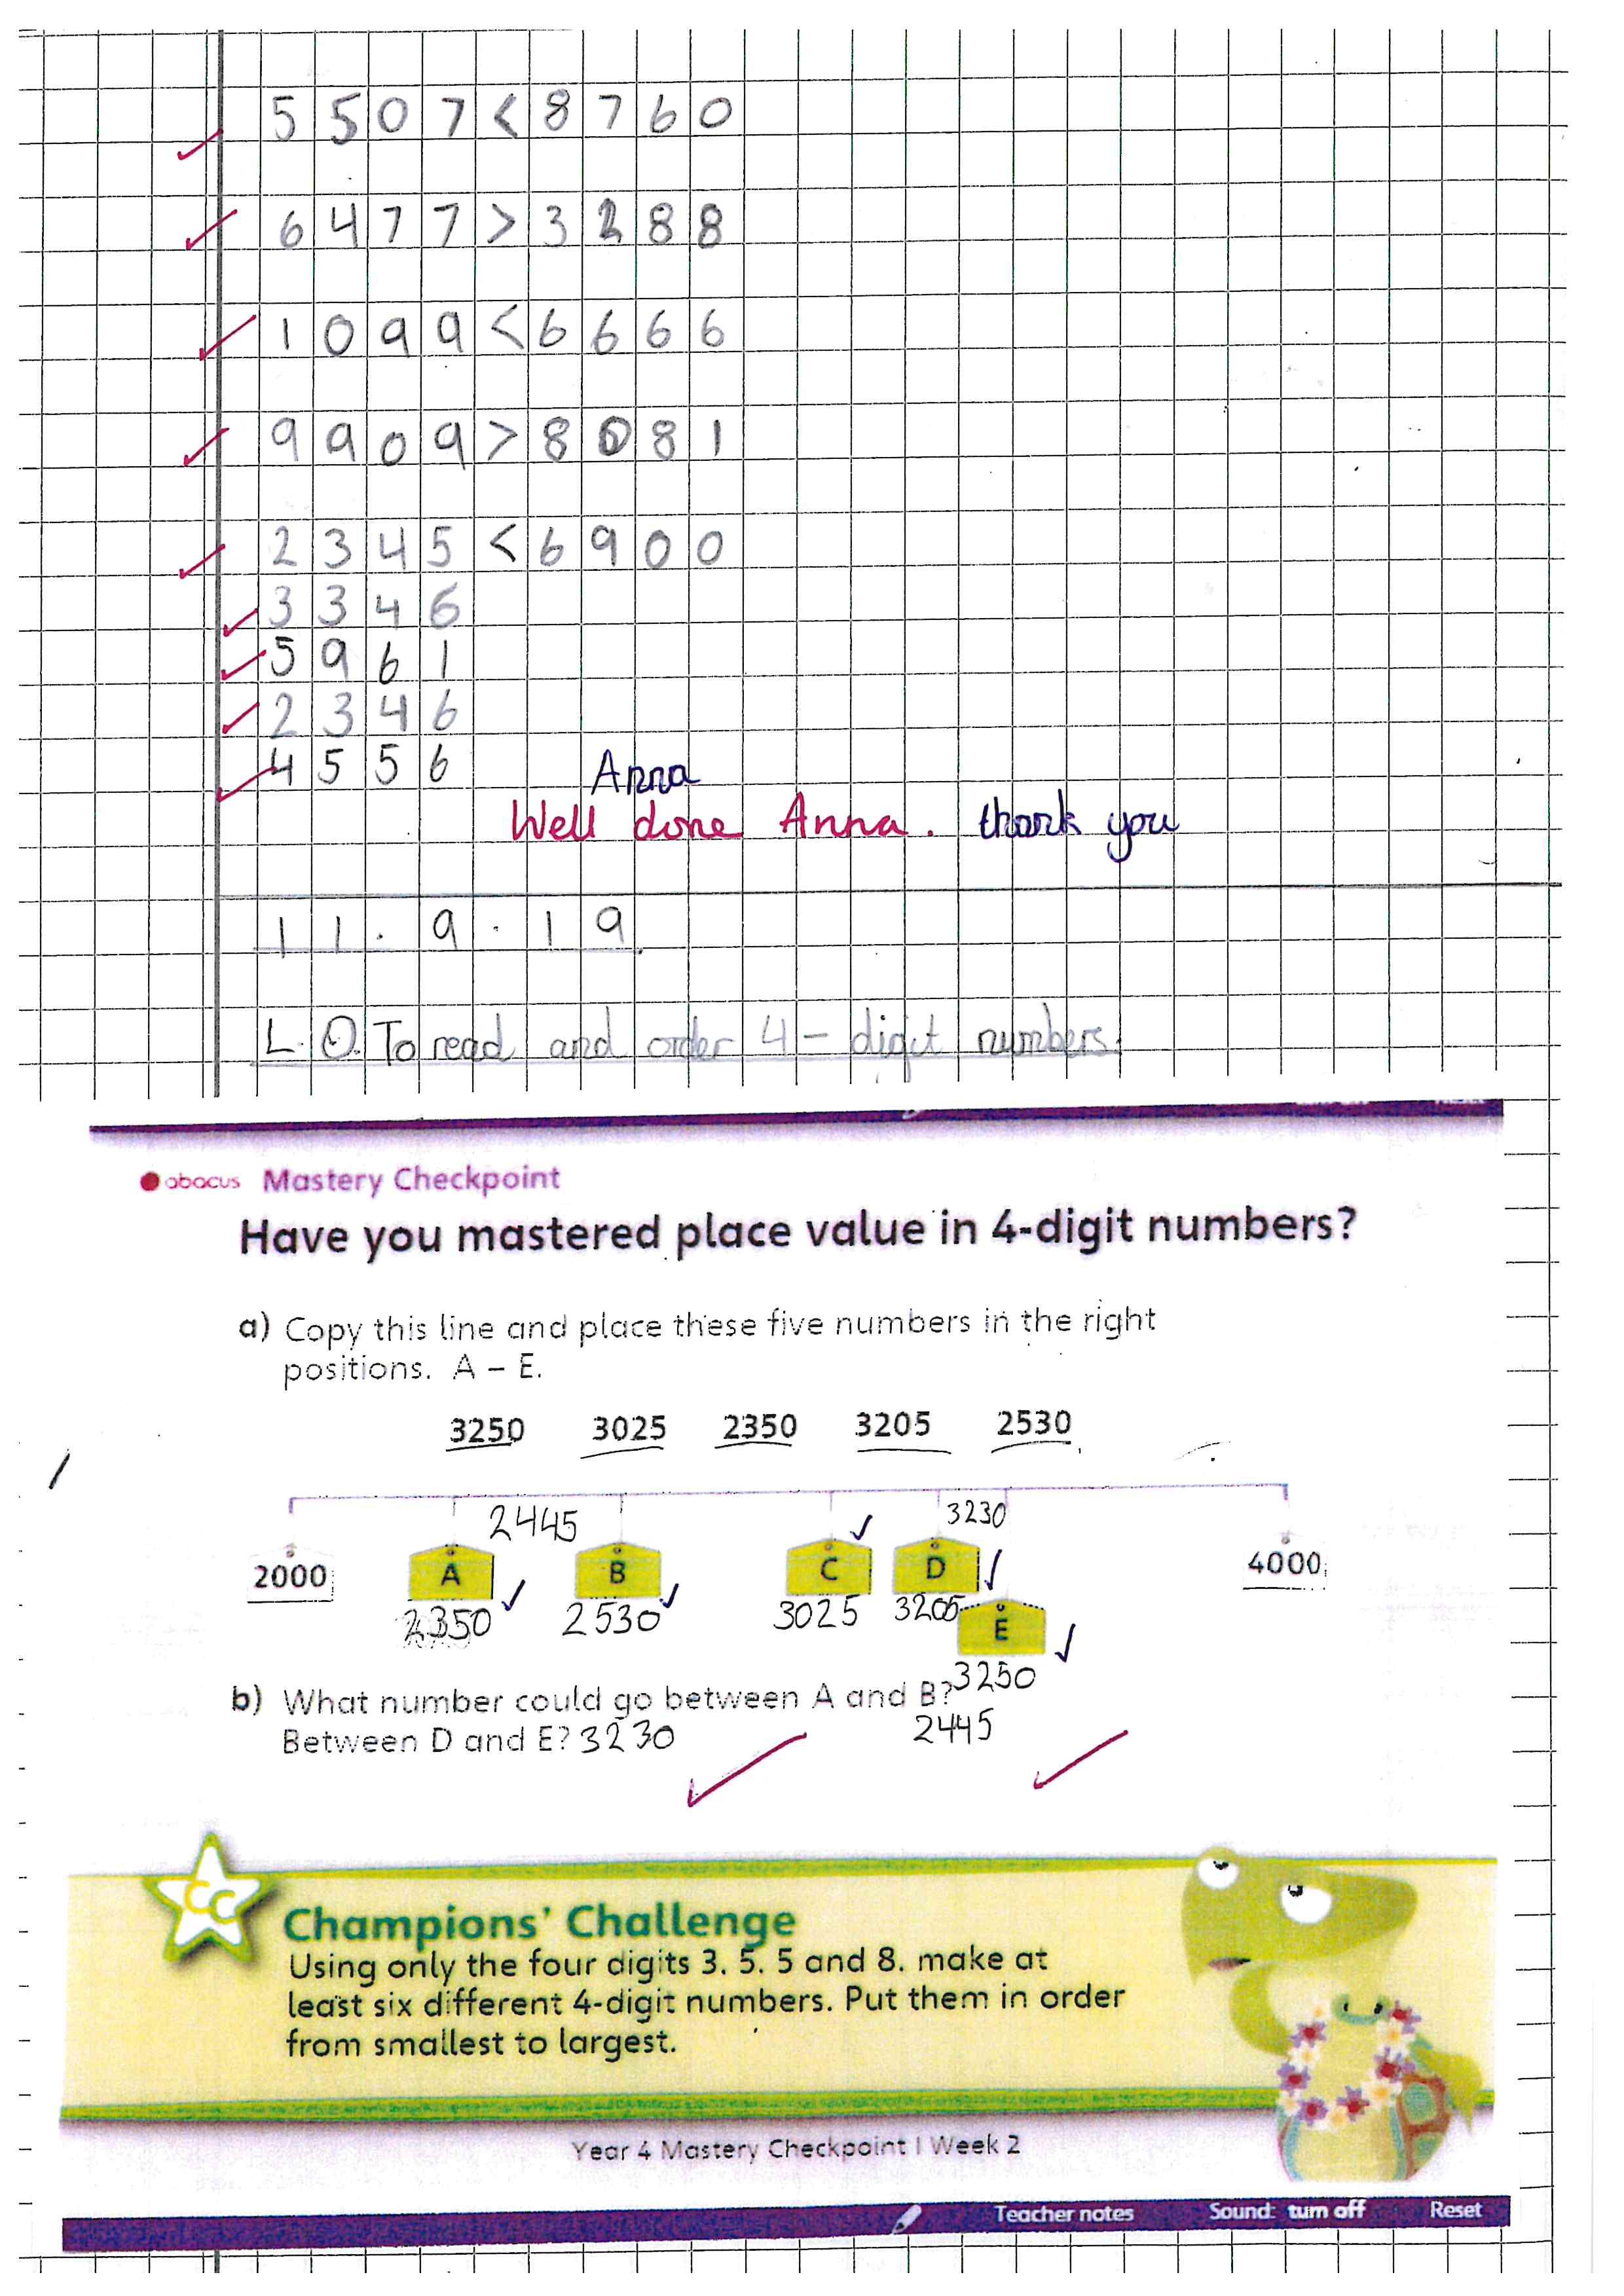 5507<8760
6477>3288
1099<6666
9909>8081
2345<6900
3346
5961
2346
4556
Anna
Well done Anna. thank you
11.9.19
L.O. To read and order 4-digit numbers.
abacus Mastery Checkpoint
Have you mastered place value in 4-digit numbers?
a) Copy this line and place these five numbers in the right
positions. A – E.
3250 3025 2350 3205 2530
2445 3230
2000 A B C D 4000
2350 2530 3025 3205
E
3250
b) What number could go between A and B?
2445
Between D and E? 3230
CC
Champions' Challenge
Using only the four digits 3, 5, 5 and 8, make at
least six different 4-digit numbers. Put them in order
from smallest to largest.
Year 4 Mastery Checkpoint | Week 2
Teacher notes Sound: turn off Reset